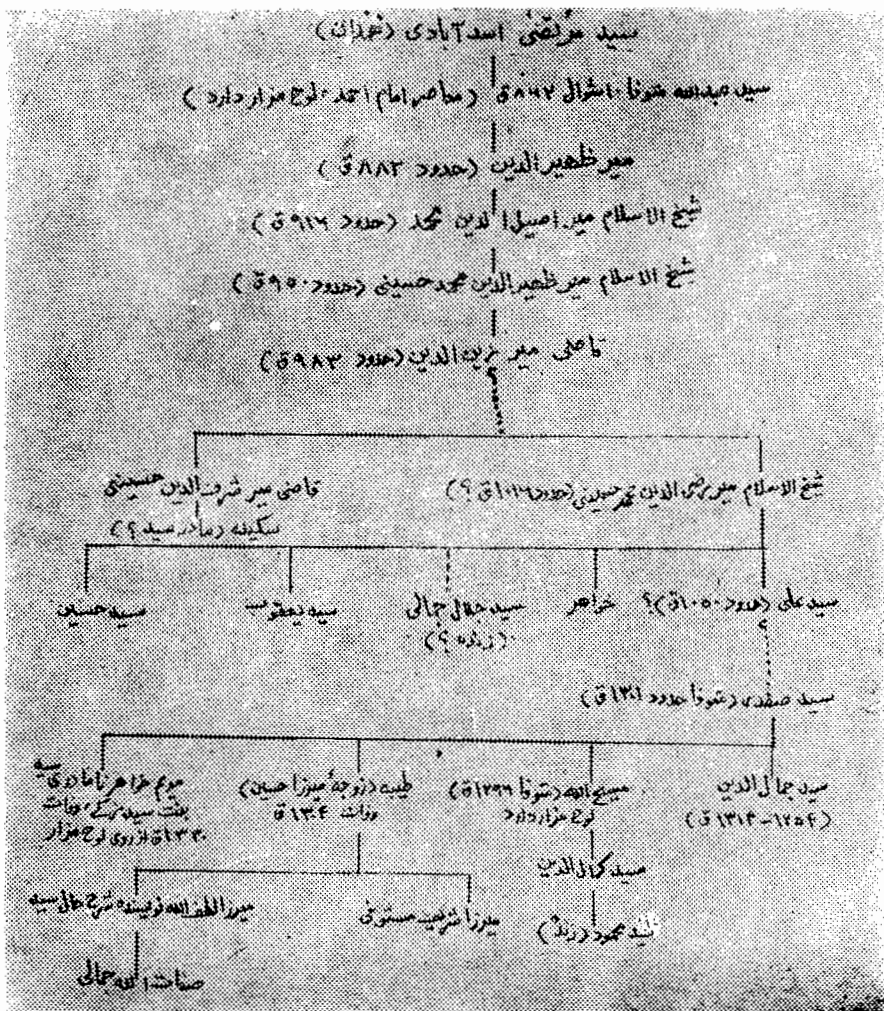 سید مرتضی اسدآبادی (همدان)
سید عبدالله متوفا ۱۰شوال ۸۶۲ق (معاصر امام احمد، لوح مزار دارد)
میر ظهیر الدین (حدود ۸۸۳ق)
شیخ الاسلام میر اصیل الدین محمد (حدود ۹۱۶ق)
شیخ الاسلام میر ظهیرالدین محمد حسینی (حدود ۹۵۰ق)
قاضی میر زین الدین (حدود ۹۸۳ق)
؟
شیخ الاسلام میر رضی الدین محمد حسینی (حدود ۱۰۱۶ق ؟)
قاضی میر شرف الدین حسینی
سکینه (مادر سید ؟)
سید علی (حدود ۱۰۵۰ق)؟
خواهر
سید جلال جمالی
(زنده ؟)
سید یعقوب
سید حسین
؟
سید صفدر (متوفا حدود ۱۳۰۱ق)
سید جمال الدین
(۱۲۵۴-۱۳۱۴ ق)
مسیح الله (متوفا ۱۲۹۶ق)
لوح مزار دارد
طیبه (زوجهٔ میرزا حسین)
وفات ۱۳۰۴ق
مریم خواهر نامادری سید
بنت سید وفات
۱۳۳۰ق از روی لوح مزار
سید کمال الدین
سید محمود (زنده)
میرزا شریف مستوفی
میرزا لطف الله نویسنده شرح حال سید
صفات الله جمالی